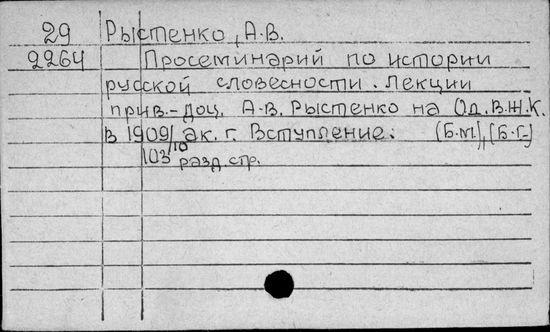 29 Рыстенко, А.В.
2264 Просеминарий по истории
русской словесности. Лекции
прив.-доц. А.В. Рыстенко на Од.В.Ж.К.
в 1909/10 ак. г. Вступление. [Б.М.], [Б.Г.]
103 разд. стр.